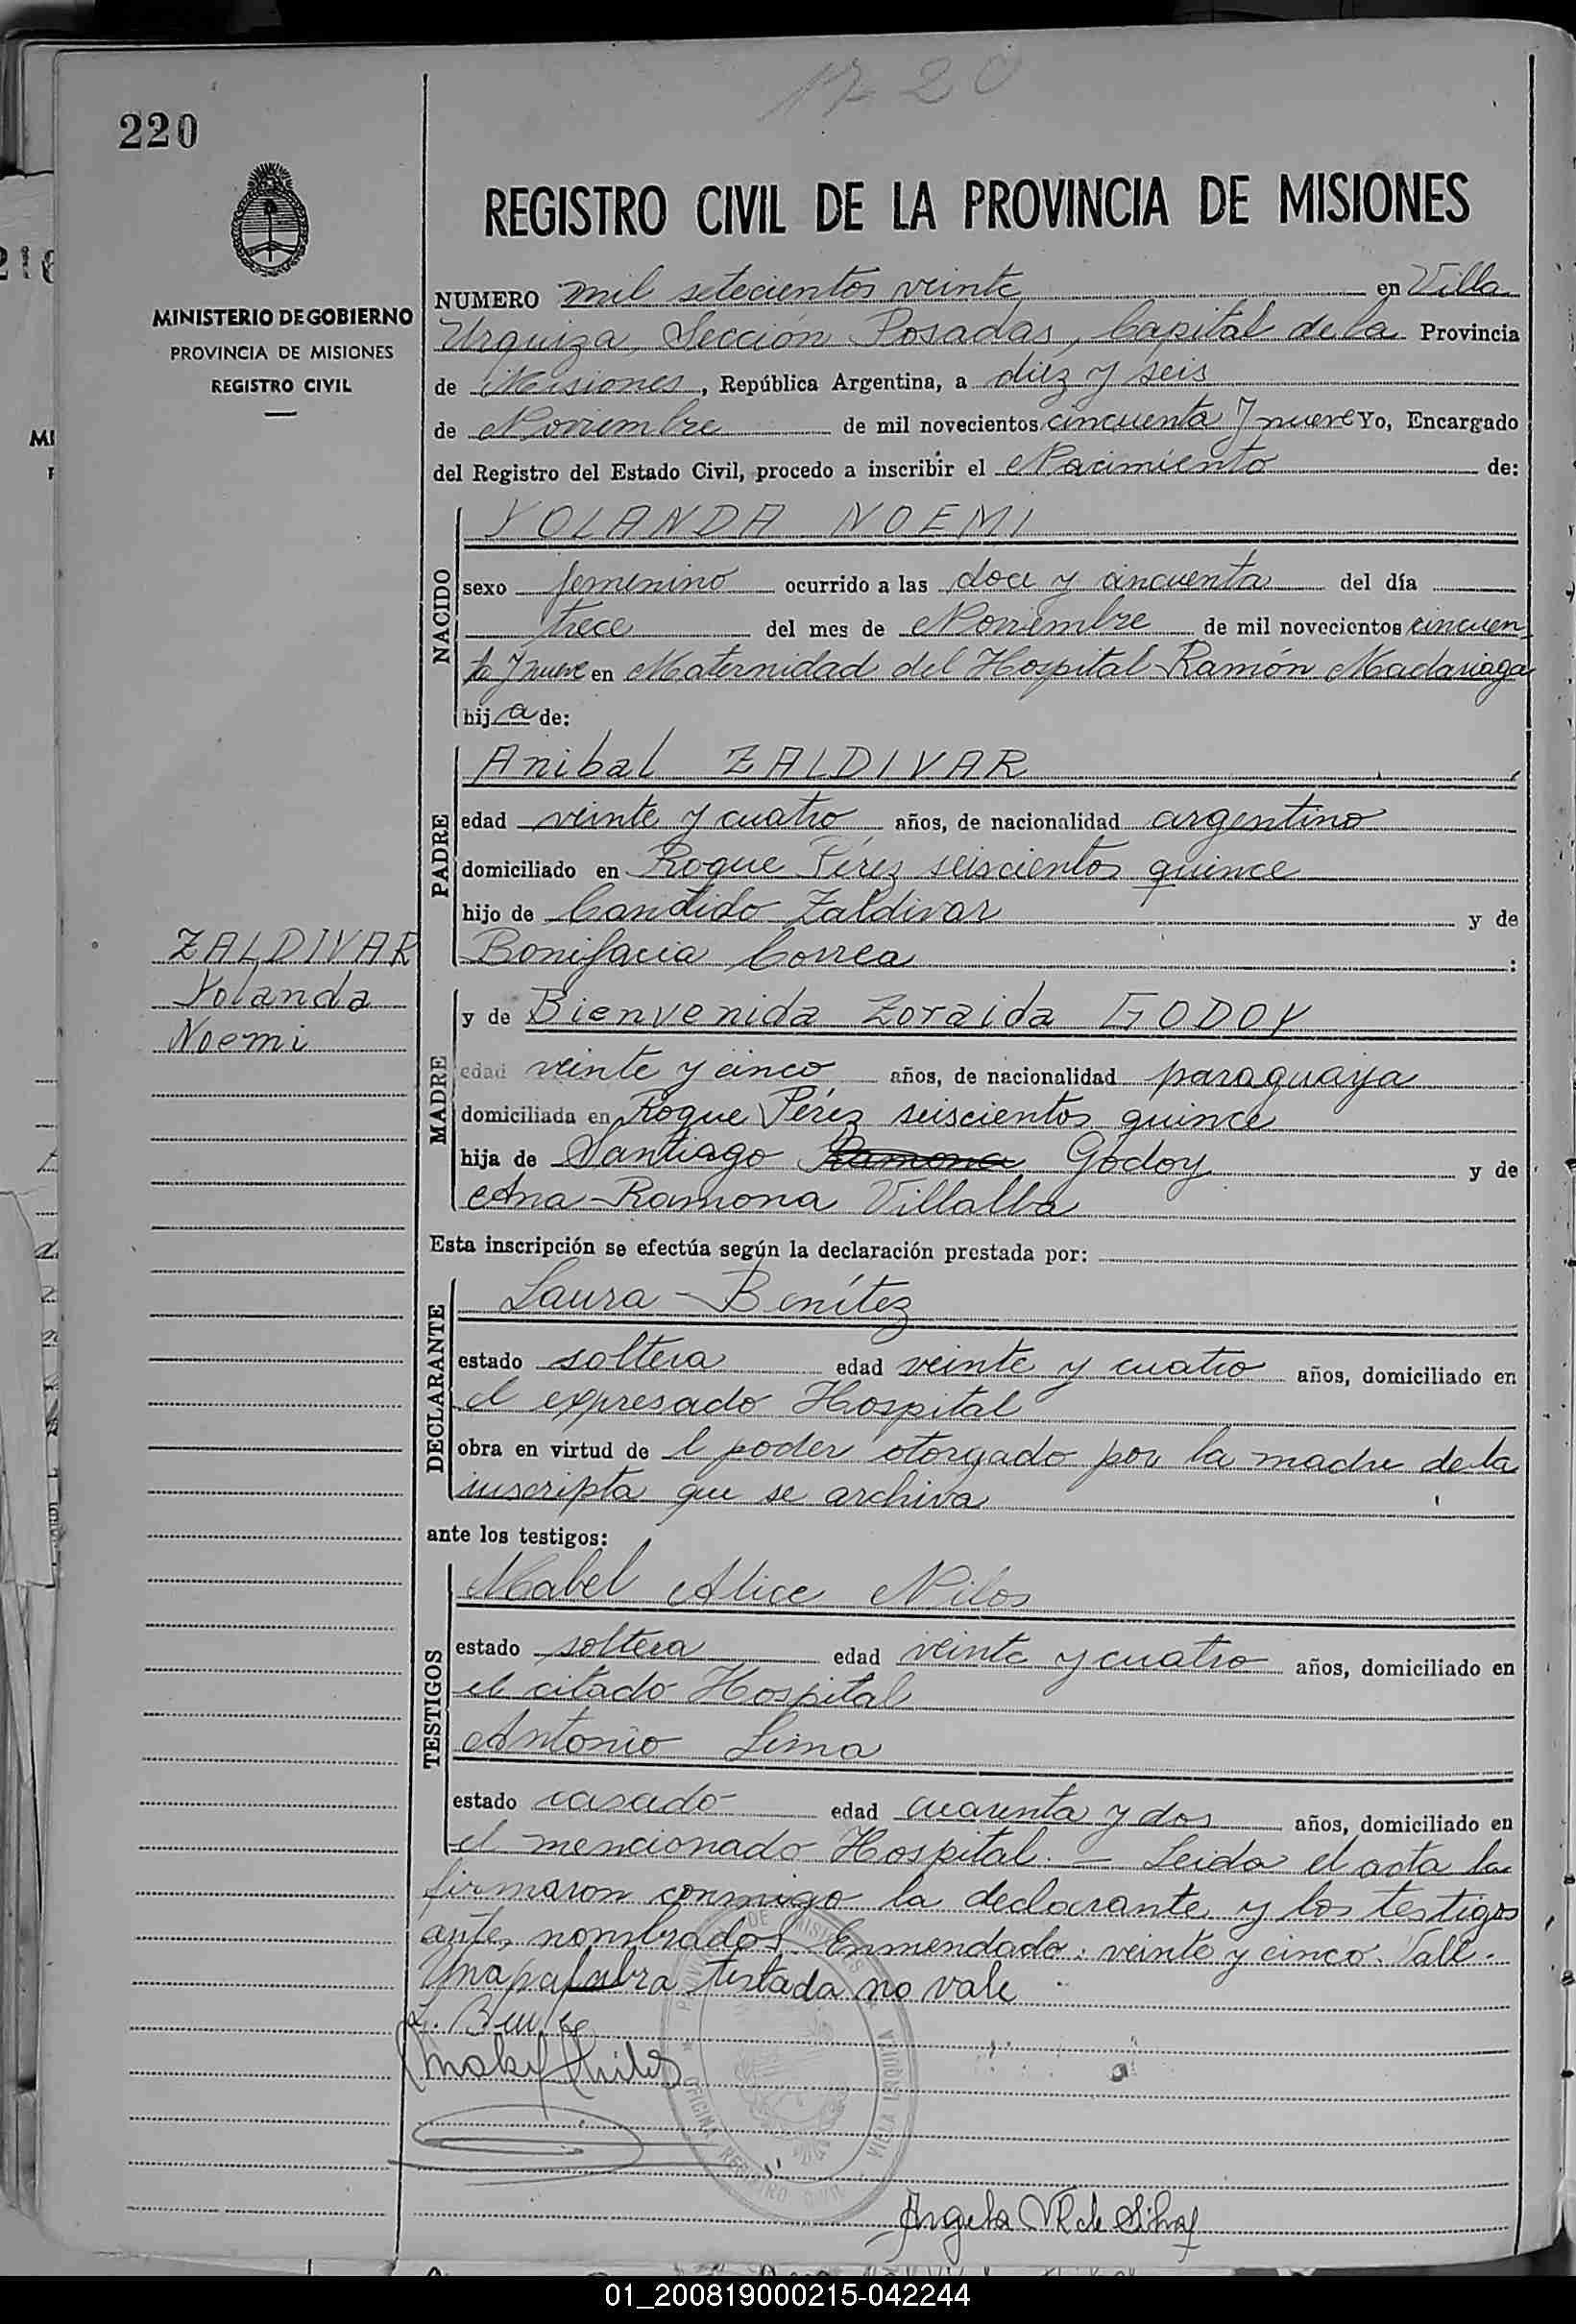 1720
220
REGISTRO CIVIL DE LA PROVINCIA DE MISIONES
MINISTERIO DE GOBIERNO
PROVINCIA DE MISIONES
REGISTRO CIVIL
NUMERO mil setecientos veinte en Villa
Urquiza, Sección Posadas, Capital de la Provincia
de Misiones, República Argentina, a diez y seis
de Noviembre de mil novecientos cincuenta y nueve Yo, Encargado
del Registro del Estado Civil, procedo a inscribir el Nacimiento de:
NACIDO
YOLANDA NOEMI
sexo femenino ocurrido a las doce y cincuenta del día
trece del mes de Noviembre de mil novecientos cincuen-
ta y nueve en Maternidad del Hospital Ramón Madariaga
hija de:
PADRE
Anibal ZALDIVAR
edad veinte y cuatro años, de nacionalidad argentino
domiciliado en Roque Pérez seiscientos quince
hijo de Candido Zaldivar y de
Bonifacia Correa :
ZALDIVAR
Yolanda
Noemi
MADRE
y de Bienvenida Zoraida GODOY
edad veinte y cinco años, de nacionalidad paraguaya
domiciliada en Roque Pérez seiscientos quince
hija de Santiago Ramona Godoy y de
Ana Ramona Villalba
Esta inscripción se efectúa según la declaración prestada por:
DECLARANTE
Laura Benítez
estado soltera edad veinte y cuatro años, domiciliado en
el expresado Hospital
obra en virtud de l poder otorgado por la madre de la
inscripta que se archiva
ante los testigos:
TESTIGOS
Mabel Alice Nilos
estado soltera edad veinte y cuatro años, domiciliado en
el citado Hospital
Antonio Lima
estado casado edad cuarenta y dos años, domiciliado en
el mencionado Hospital. — Leida el acta la
firmaron conmigo la declarante y los testigos
antes nombrados. Enmendado: veinte y cinco. Vale.
Una palabra testada no vale
L. Benítez
Angela V R de Silva
01_200819000215-042244